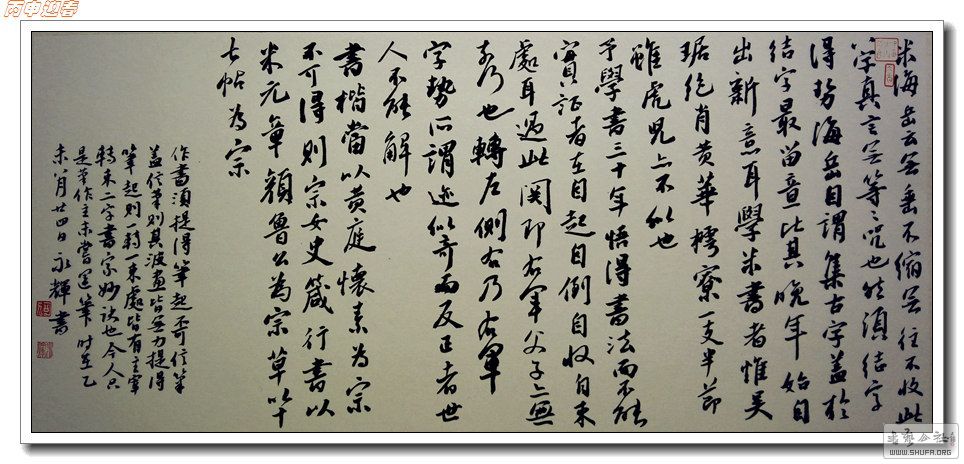 丙申迎春
米海岳云無垂不縮無往不收此
八字真言無等々咒也然須结字
得势海岳自謂集古字蓋於
结字最留意比其晚年始自
出新意耳學米書者惟吴
琚绝肖黄華樗寮一支半節
雖虎兒亦不似也
予學書三十年悟得書法而不能
實証者在自起自倒自收自束
處耳過此関即右軍父子亦無
奈何也轉左側右乃右軍
字勢所謂迹似奇而反正者世
人不能解也
書楷當以黄庭懷素為宗
不可得則宗女史箴行書以
米元章顏魯公為宗草以十
七帖為宗
作書須提得筆起不可信筆
蓋信筆則其波畫皆無力提得
筆起則一轉一束處皆有主宰
轉束二字書家妙訣也今人只
是筆作主未嘗運筆时在乙
未八月廿四日永輝書
WWW.SHUFA.ORG